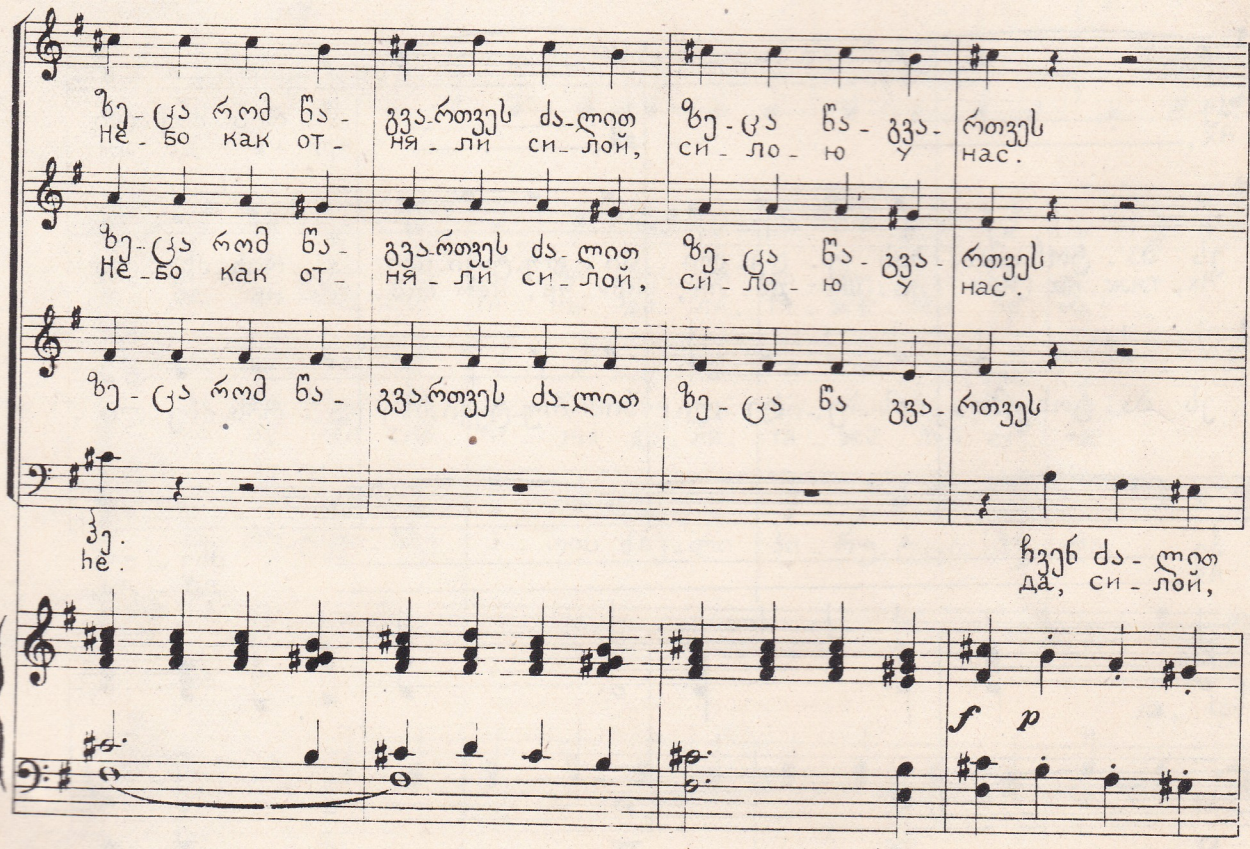 ზე-ცა რომ წა- გვა-რთვეს ძა-ლით ზე-ცა წა-გვა-რთვეს
Не-бо как от-ня-ли си-лой, си-ло-ю у нас.
ზე-ცა რომ წა- გვა-რთვეს ძა-ლით ზე-ცა წა-გვა-რთვეს
Не-бо как от-ня-ли си-лой, си-ло-ю у нас.
ზე-ცა რომ წა- გვა-რთვეს ძა-ლით ზე-ცა წა გვა-რთვეს
ჰე. ჩვენ ძა-ლით
he. да, си-лой,
f p